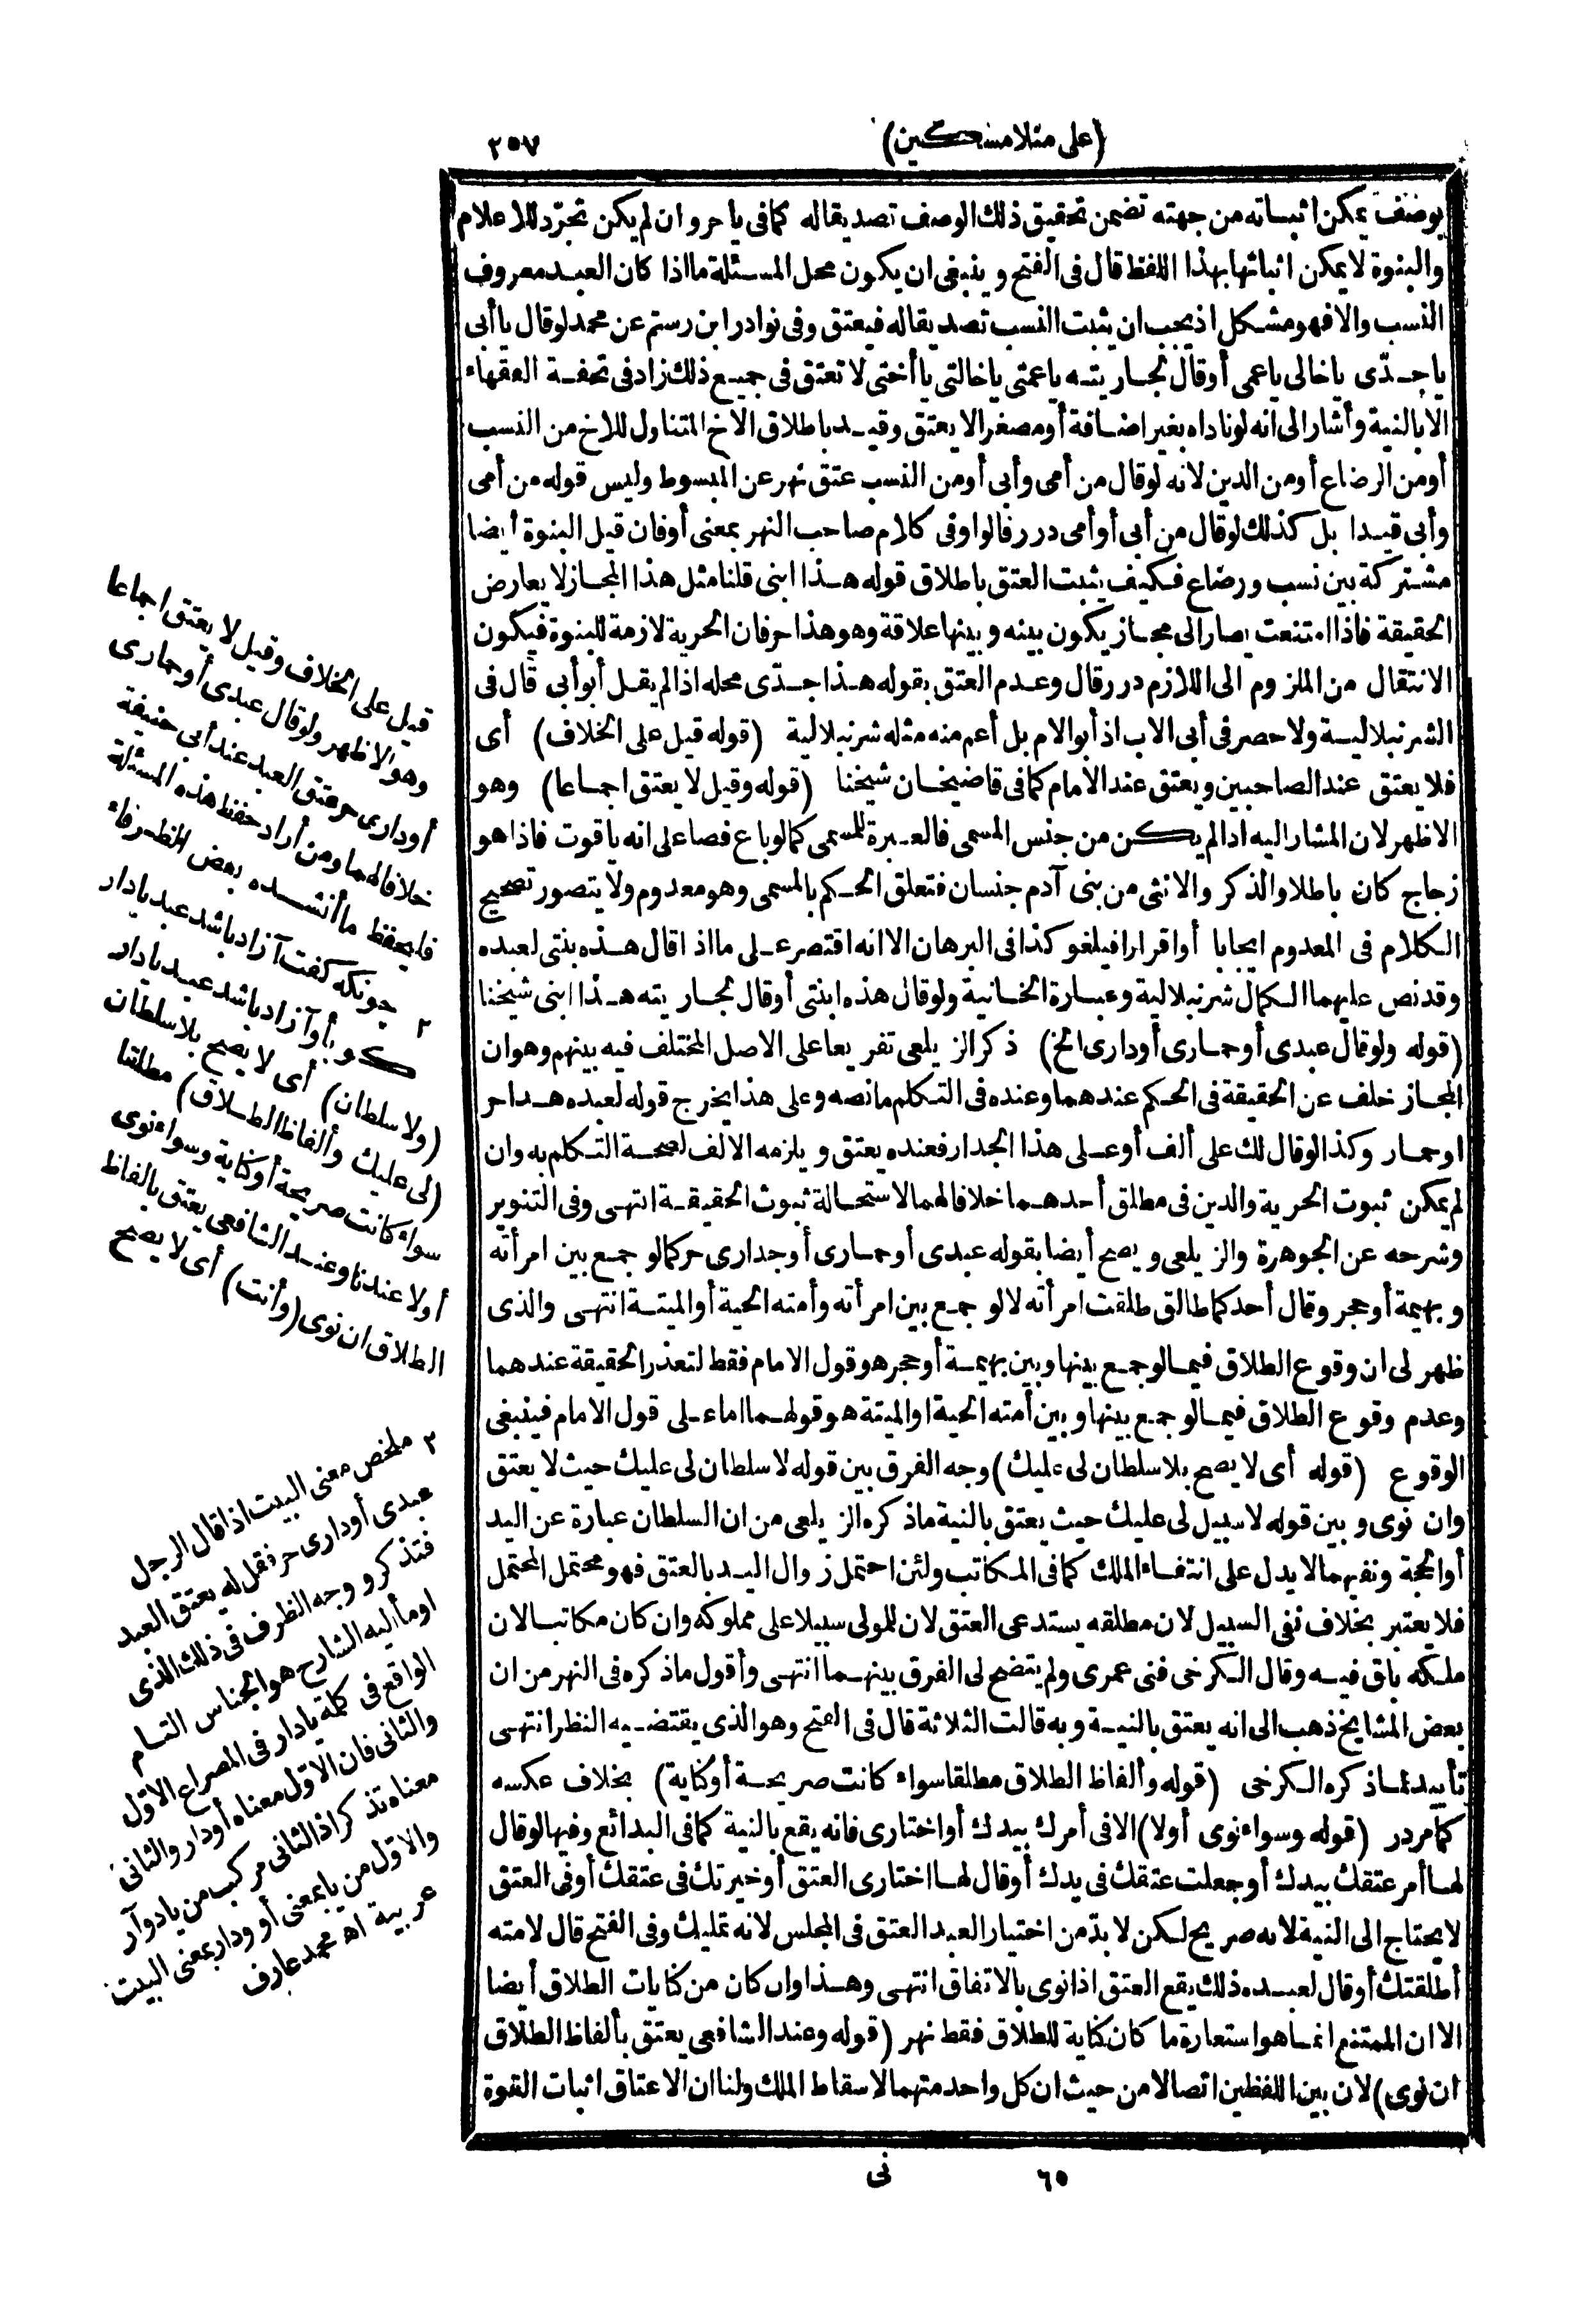 (على منلا مسكين) ٢٥٧
بوصف يمكن اثباته من جهته تضمن تحقيق ذلك الوصف تصديقا له كما فى يا حر وان لم يكن تجرد للاعلام
والبنوة لا يمكن اثباتها بهذا اللفظ قال فى الفتح وينبغى ان يكون محل المسئلة ما اذا كان العبد معروف
النسب والا فهو مشكل اذ يجب ان يثبت النسب تصديقا له فيعتق وفى نوادر ابن رستم عن محمد لو قال يا أبى
يا جدّى يا خالى يا عمى أو قال لجاريته يا عمتى يا خالتى يا أختى لا تعتق فى جميع ذلك زاد فى تحفة الفقهاء
الا بالنية وأشار الى انه لو ناداه بغير اضافة أو مصغرا لا يعتق وقيد باطلاق الاخ المتناول للاخ من النسب
أو من الرضاع أو من الدين لانه لو قال من أمى وأبى أو من النسب عتق نهر عن المبسوط وليس قوله من أمى
وأبى قيدا بل كذلك لو قال من أبى أو أمى درر فالواو فى كلام صاحب النهر بمعنى أو فان قيل البنوة أيضا
مشتركة بين نسب ورضاع فكيف يثبت العتق باطلاق قوله هذا ابنى قلنا مثل هذا المجاز لا يعارض
الحقيقة فاذا امتنعت يصار الى مجاز يكون بينه وبينها علاقة وهو هذا حر فان الحرية لازمة للبنوة فيكون
الانتقال من الملزوم الى اللازم درر قال وعدم العتق بقوله هذا جدّى محله اذا لم يقل أبو أبى قال فى
الشرنبلالية ولا حصر فى أبى الاب اذ أبو الام بل أعم منه مثله شرنبلالية (قوله قيل على الخلاف) أى
فلا يعتق عند الصاحبين ويعتق عند الامام كما فى قاضيخان شيخنا (قوله وقيل لا يعتق اجماعا) وهو
الاظهر لان المشار اليه اذا لم يكن من جنس المسمى فالعبرة للمسمى كما لو باع فصا على انه ياقوت فاذا هو
زجاج كان باطلا والذكر والانثى من بنى آدم جنسان فتعلق الحكم بالمسمى وهو معدوم ولا يتصور تصحيح
الكلام فى المعدوم ايجابا أو اقرارا فيلغو كذا فى البرهان الا انه اقتصر على ما اذا قال هذه بنتى لعبده
وقد نص عليهما الكمال شرنبلالية وعبارة الخانية ولو قال هذه ابنتى أو قال لجاريته هذا ابنى شيخنا
(قوله ولو قال عبدى أو حمارى أو دارى الخ) ذكر الزيلعى تفريعا على الاصل المختلف فيه بينهم وهو ان
المجاز خلف عن الحقيقة فى الحكم عندهما وعنده فى التكلم ما نصه وعلى هذا يخرج قوله لعبده هذا حر
او حمار وكذا لو قال لك على ألف أو على هذا الجدار فعنده يعتق ويلزمه الالف لصحة التكلم به وان
لم يمكن ثبوت الحرية والدين فى مطلق أحدهما خلافا لهما لاستحالة ثبوت الحقيقة انتهى وفى التنوير
وشرحه عن الجوهرة والزيلعى ويصح أيضا بقوله عبدى أو حمارى أو جدارى حر كما لو جمع بين امرأته
وبهيمة أو حجر وقال أحدكما طالق طلقت امرأته لا لو جمع بين امرأته وأمته الحية أو الميتة انتهى والذى
ظهر لى ان وقوع الطلاق فيما لو جمع بينها وبين بهيمة أو حجر هو قول الامام فقط لتعذر الحقيقة عندهما
وعدم وقوع الطلاق فيما لو جمع بينها وبين أمته الحية او الميتة هو قولهما اما على قول الامام فينبغى
الوقوع (قوله أى لا يصح بلا سلطان لى عليك) وجه الفرق بين قوله لا سلطان لى عليك حيث لا يعتق
وان نوى وبين قوله لا سبيل لى عليك حيث يعتق بالنية ما ذكره الزيلعى من ان السلطان عبارة عن اليد
أو الحجة ونفيهما لا يدل على انتفاء الملك كما فى المكاتب ولئن احتمل زوال اليد بالعتق فهو محتمل المحتمل
فلا يعتبر بخلاف نفى السبيل لان مطلقه يستدعى العتق لان للمولى سبيلا على مملوكه وان كان مكاتبا لان
ملكه باق فيه وقال الكرخى فنى عمرى ولم يتضح لى الفرق بينهما انتهى وأقول ما ذكره فى النهر من ان
بعض المشايخ ذهب الى انه يعتق بالنية وبه قالت الثلاثة قال فى الفتح وهو الذى يقتضيه النظر انتهى
تأييد لما ذكره الكرخى (قوله وألفاظ الطلاق مطلقا سواء كانت صريحة أو كناية) بخلاف عكسه
كما مر درر (قوله وسواء نوى أولا) الا فى أمرك بيدك أو اختارى فانه يقع بالنية كما فى البدائع وفيها لو قال
لها أمر عتقك بيدك أو جعلت عتقك فى يدك أو قال لها اختارى العتق أو خيرتك فى عتقك أو فى العتق
لا يحتاج الى النية لانه صريح لكن لا بدّ من اختيار العبد العتق فى المجلس لانه تمليك وفى الفتح قال لامته
أطلقتك أو قال لعبده ذلك يقع العتق اذا نوى بالاتفاق انتهى وهذا وان كان من كنايات الطلاق أيضا
الا ان الممتنع انما هو استعارة ما كان كناية للطلاق فقط نهر (قوله وعند الشافعى يعتق بألفاظ الطلاق
ان نوى) لان بين اللفظين اتصالا من حيث ان كل واحد منهما لاسقاط الملك ولنا ان الاعتاق اثبات القوة
٦٥ نى
قيل على الخلاف وقيل لا يعتق اجماعا
وهو الاظهر ولو قال عبدى أو حمارى
أو دارى حر عتق العبد عند أبى حنيفة
خلافا لهما ومن أراد حفظ هذه المسئلة
فليحفظ ما أنشده بعض الظرفاء
جونكه كفت آزاد باشد عبد يا دار
٢ كو بأو آزاد باشد عبد يا دار
(ولا سلطان) أى لا يصح بلا سلطان
(لى عليك وألفاظ الطلاق) مطلقا
سواء كانت صريحة أو كناية وسواء نوى
أولا عندنا وعند الشافعى يعتق بالفاظ
الطلاق ان نوى (وأنت) أى لا يصح
٢ ملخص معنى البيت اذا قال الرجل
عبدى أو دارى حر فقل له يعتق العبد
فتذكر ووجه الظرف فى ذلك الذى
اومأ اليه الشارح هو الجناس التام
الواقع فى كلمة يا دار فى المصراع الاوّل
والثانى فان الاوّل معناه أو دار والثانى
معناه تذكر اذ الثانى مركب من يا دوآر
والاوّل من يا بمعنى أو ودار بمعنى البيت
عربية اه محمد عارف